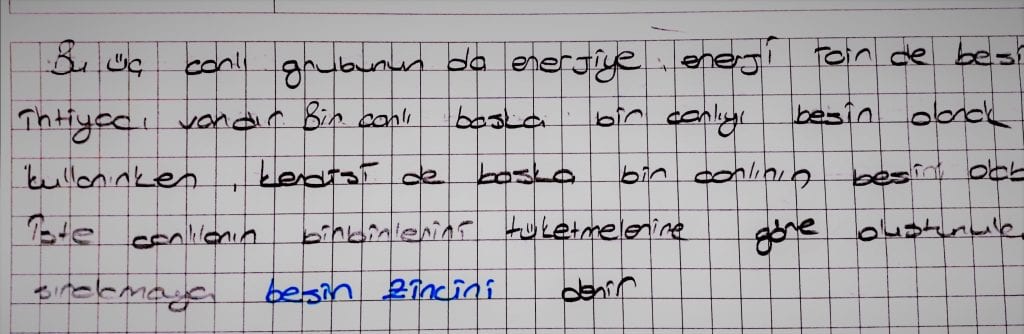 Bu üç canlı grubunun da enerjiye, enerji için de besi
ihtiyacı vardır Bir canlı başka bir canlıyı besin olarak
kullanırken, kendisi de başka bir canlının besini olab
İşte canlıların birbirlerini tüketmelerine göre oluşturul
sıralamaya besin zinciri denir